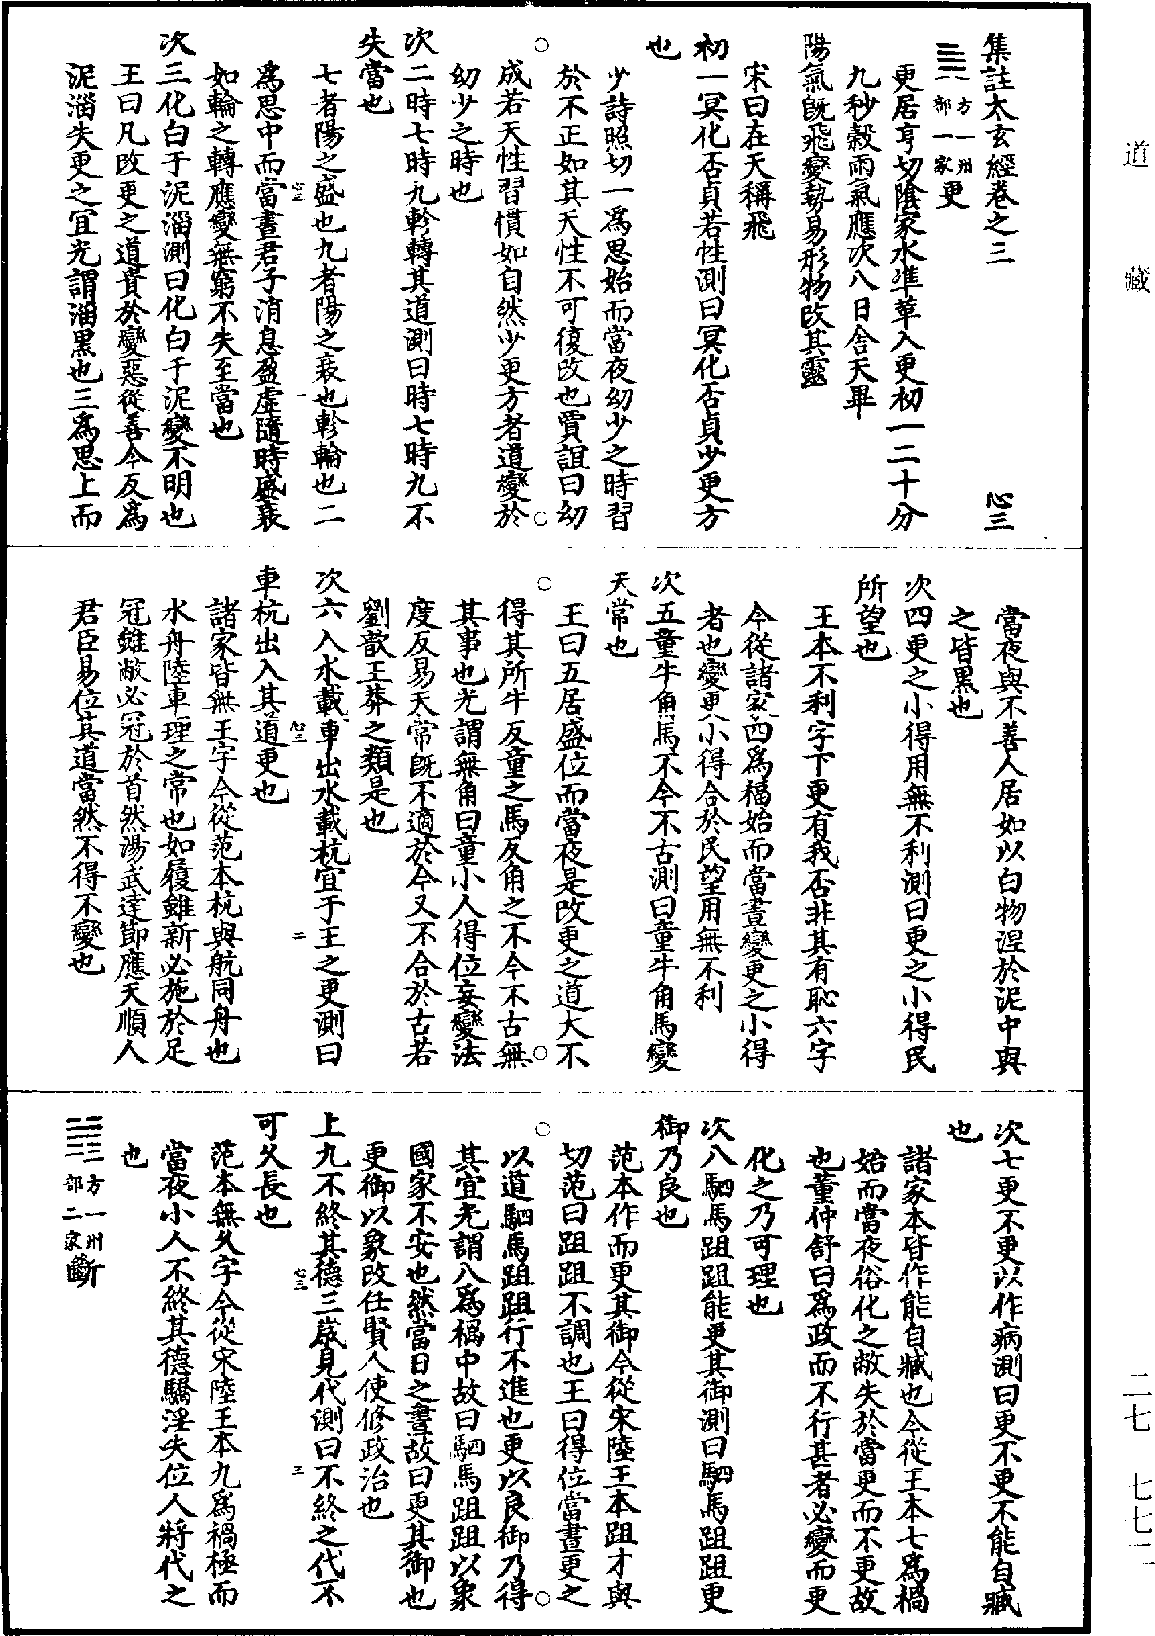 集註太玄經卷之三　心三
𝌡一方一州一部一家更
更居亨切陰家水準革入更初一二十分
九秒穀雨氣應次八日舍天畢
陽氣旣飛變勢易形物改其靈
宋曰在天稱飛
初一冥化否貞若性測曰冥化否貞少更方
也
少詩照切一爲思始而當夜幼少之時習
於不正如其天性不可復改也賈誼曰幼
成若天性習慣如自然少更方者道變於
幼少之時也
次二時七時九軫轉其道測曰時七時九不
失當也
七者陽之盛也九者陽之衰也軫輪也二
爲思中而當晝君子消息盈虛隨時盛衰
如輪之轉應變無窮不失至當也
次三化白于泥淄測曰化白于泥變不明也
王曰凡改更之道貴於變惡從善今反爲
泥淄失更之宜光謂淄黑也三爲思上而
當夜與不善人居如以白物涅於泥中與
之皆黑也
次四更之小得用無不利測曰更之小得民
所望也
王本不利字下更有我否非其有恥六字
今從諸家四爲福始而當晝變更之小得
者也變更小得合於民望用無不利
次五童牛角馬不今不古測曰童牛角馬變
天常也
王曰五居盛位而當夜是改更之道大不
得其所牛反童之馬反角之不今不古無
其事也光謂無角曰童小人得位妄變法
度反易天常旣不適於今又不合於古若
劉歆王莽之類是也
次六入水載車出水載杭宜于王之更測曰
車杭出入其道更也
諸家皆無王字今從范本杭與航同舟也
水舟陸車理之常也如履雖新必施於足
冠雖敝必冠於首然湯武達節應天順人
君臣易位其道當然不得不變也
次七更不更以作病測曰更不更不能自臧
也
諸家本皆作能自臧也今從王本七爲禍
始而當夜俗化之敝失於當更而不更故
也董仲舒曰爲政而不行甚者必變而更
化之乃可理也
次八駟馬跙跙能更其御測曰駟馬跙跙更
御乃良也
范本作而更其御今從宋陸王本跙才與
切范曰跙跙不調也王曰得位當晝更之
以道駟馬跙跙行不進也更以良御乃得
其宜光謂八爲禍中故曰駟馬跙跙以象
國家不安也然當日之晝故曰更其御也
更御以象改任賢人使修政治也
上九不終其德三歲見代測曰不終之代不
可久長也
范本無久字今從宋陸王本九爲禍極而
當夜小人不終其德驕淫失位人將代之
也
一方一州二部二家斷
心三
一
心三
二
心三
三
道藏
二七　七七二